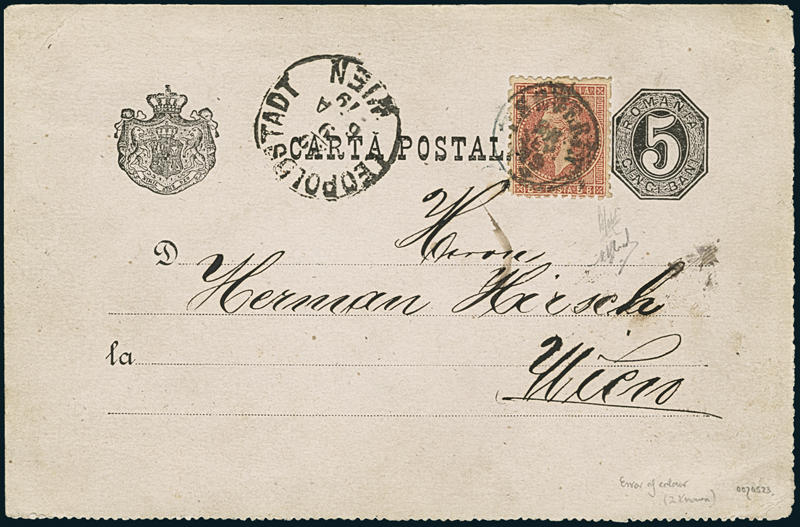 WIEN
LEOPOLDSTADT
CARTA POSTALA
POSTA
ROMANIA
5
CINCI BANI
Herrn
D
Herman Hirsch
la
Wien
Error of colour
(2 known)
0070523